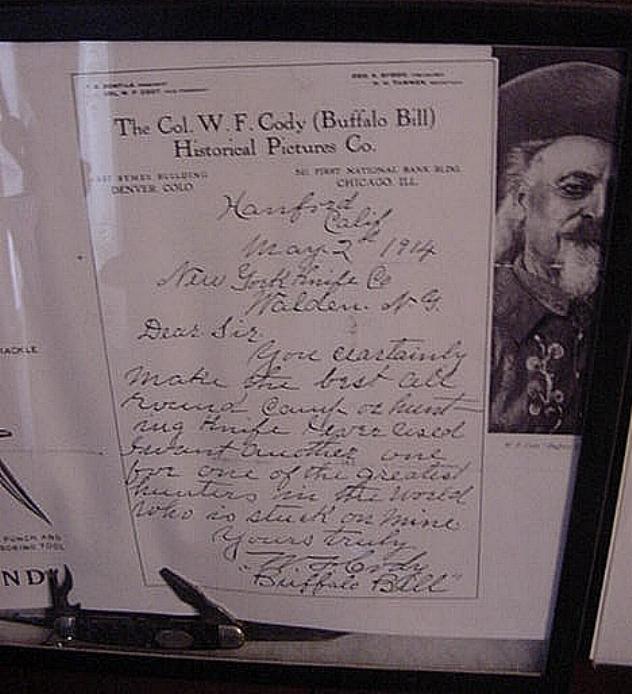 The Col. W. F. Cody (Buffalo Bill)
Historical Pictures Co.
SYMES BUILDING
DENVER, COLO.
FIRST NATIONAL BANK BLDG.
CHICAGO, ILL.
Hanford
Calif
May 2th 1914
New York Knife Co
Walden. N. Y.
Dear Sir,
You ceartainly
make the best all
round Camp or hunt-
ing Knife I ever used
I want another one
for one of the greatest
hunters in the world
who is stuck on mine
Yours truly
W. F. Cody
"Buffalo Bill"
PUNCH AND
BORING TOOL